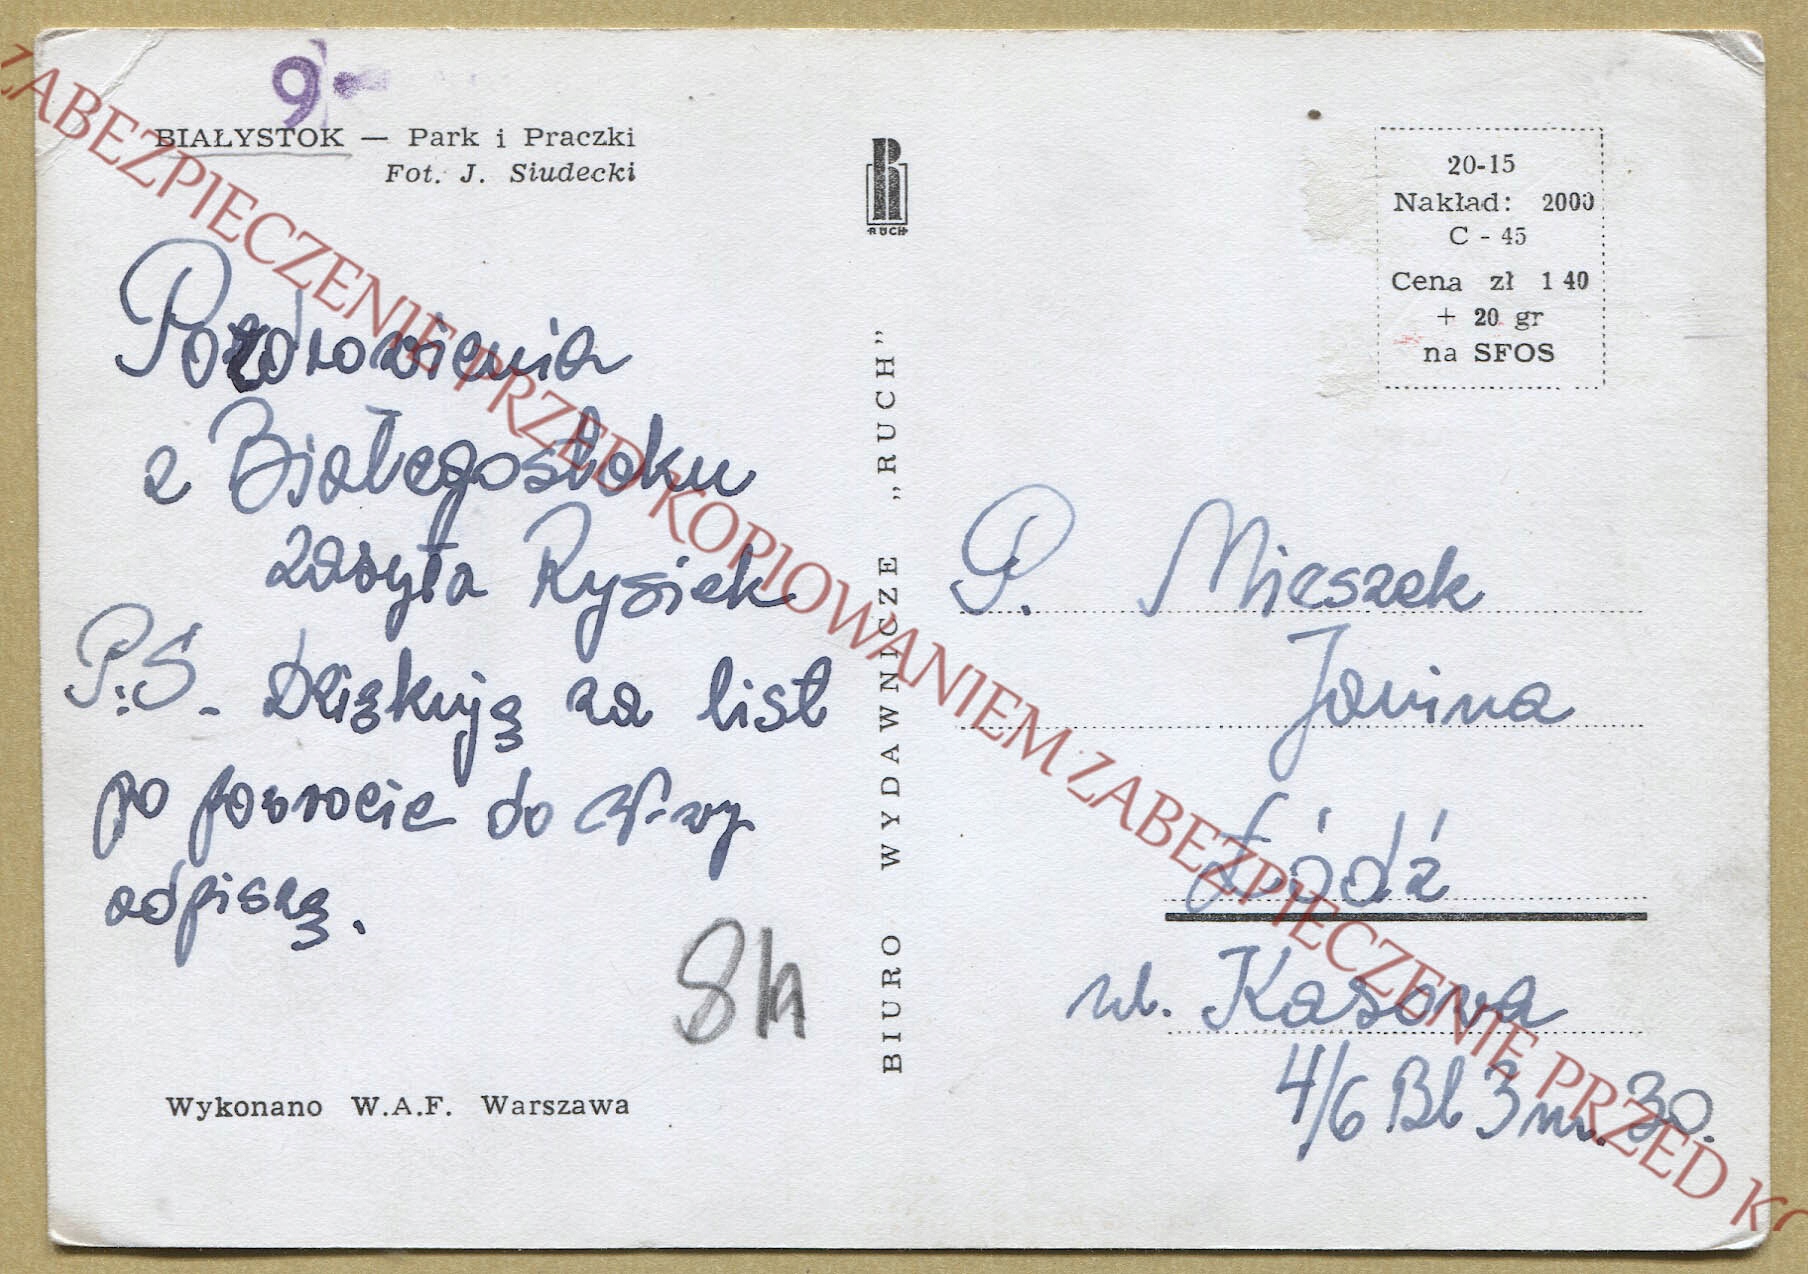 9-
BIAŁYSTOK — Park i Praczki
Fot. J. Siudecki
Pozdrowienia
z Białegostoku
zasyła Rysiek
P.S. Dziękuję za list
po powrocie do W-wy
odpiszę.
8
Wykonano W.A.F. Warszawa
RUCH
BIURO WYDAWNICZE „RUCH”
20-15
Nakład: 2000
C - 45
Cena zł 1 40
+ 20 gr
na SFOS
P. Mieszek
Janina
Łódź
ul. Kasowa
4/6 Bl 3 m. 30.
ZABEZPIECZENIE PRZED KOPIOWANIEM ZABEZPIECZENIE PRZED KO